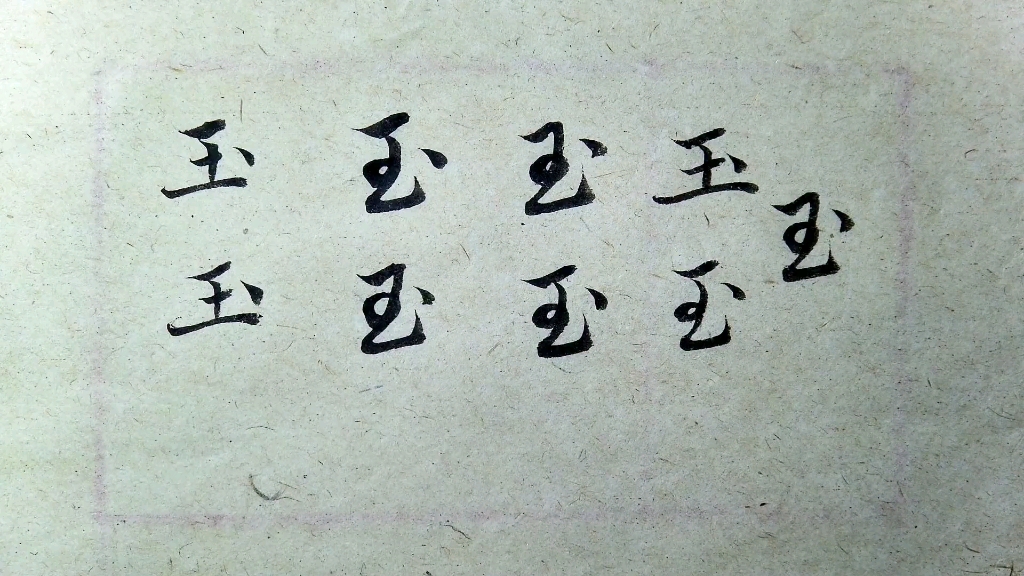 玉玉玉玉玉
玉玉玉玉